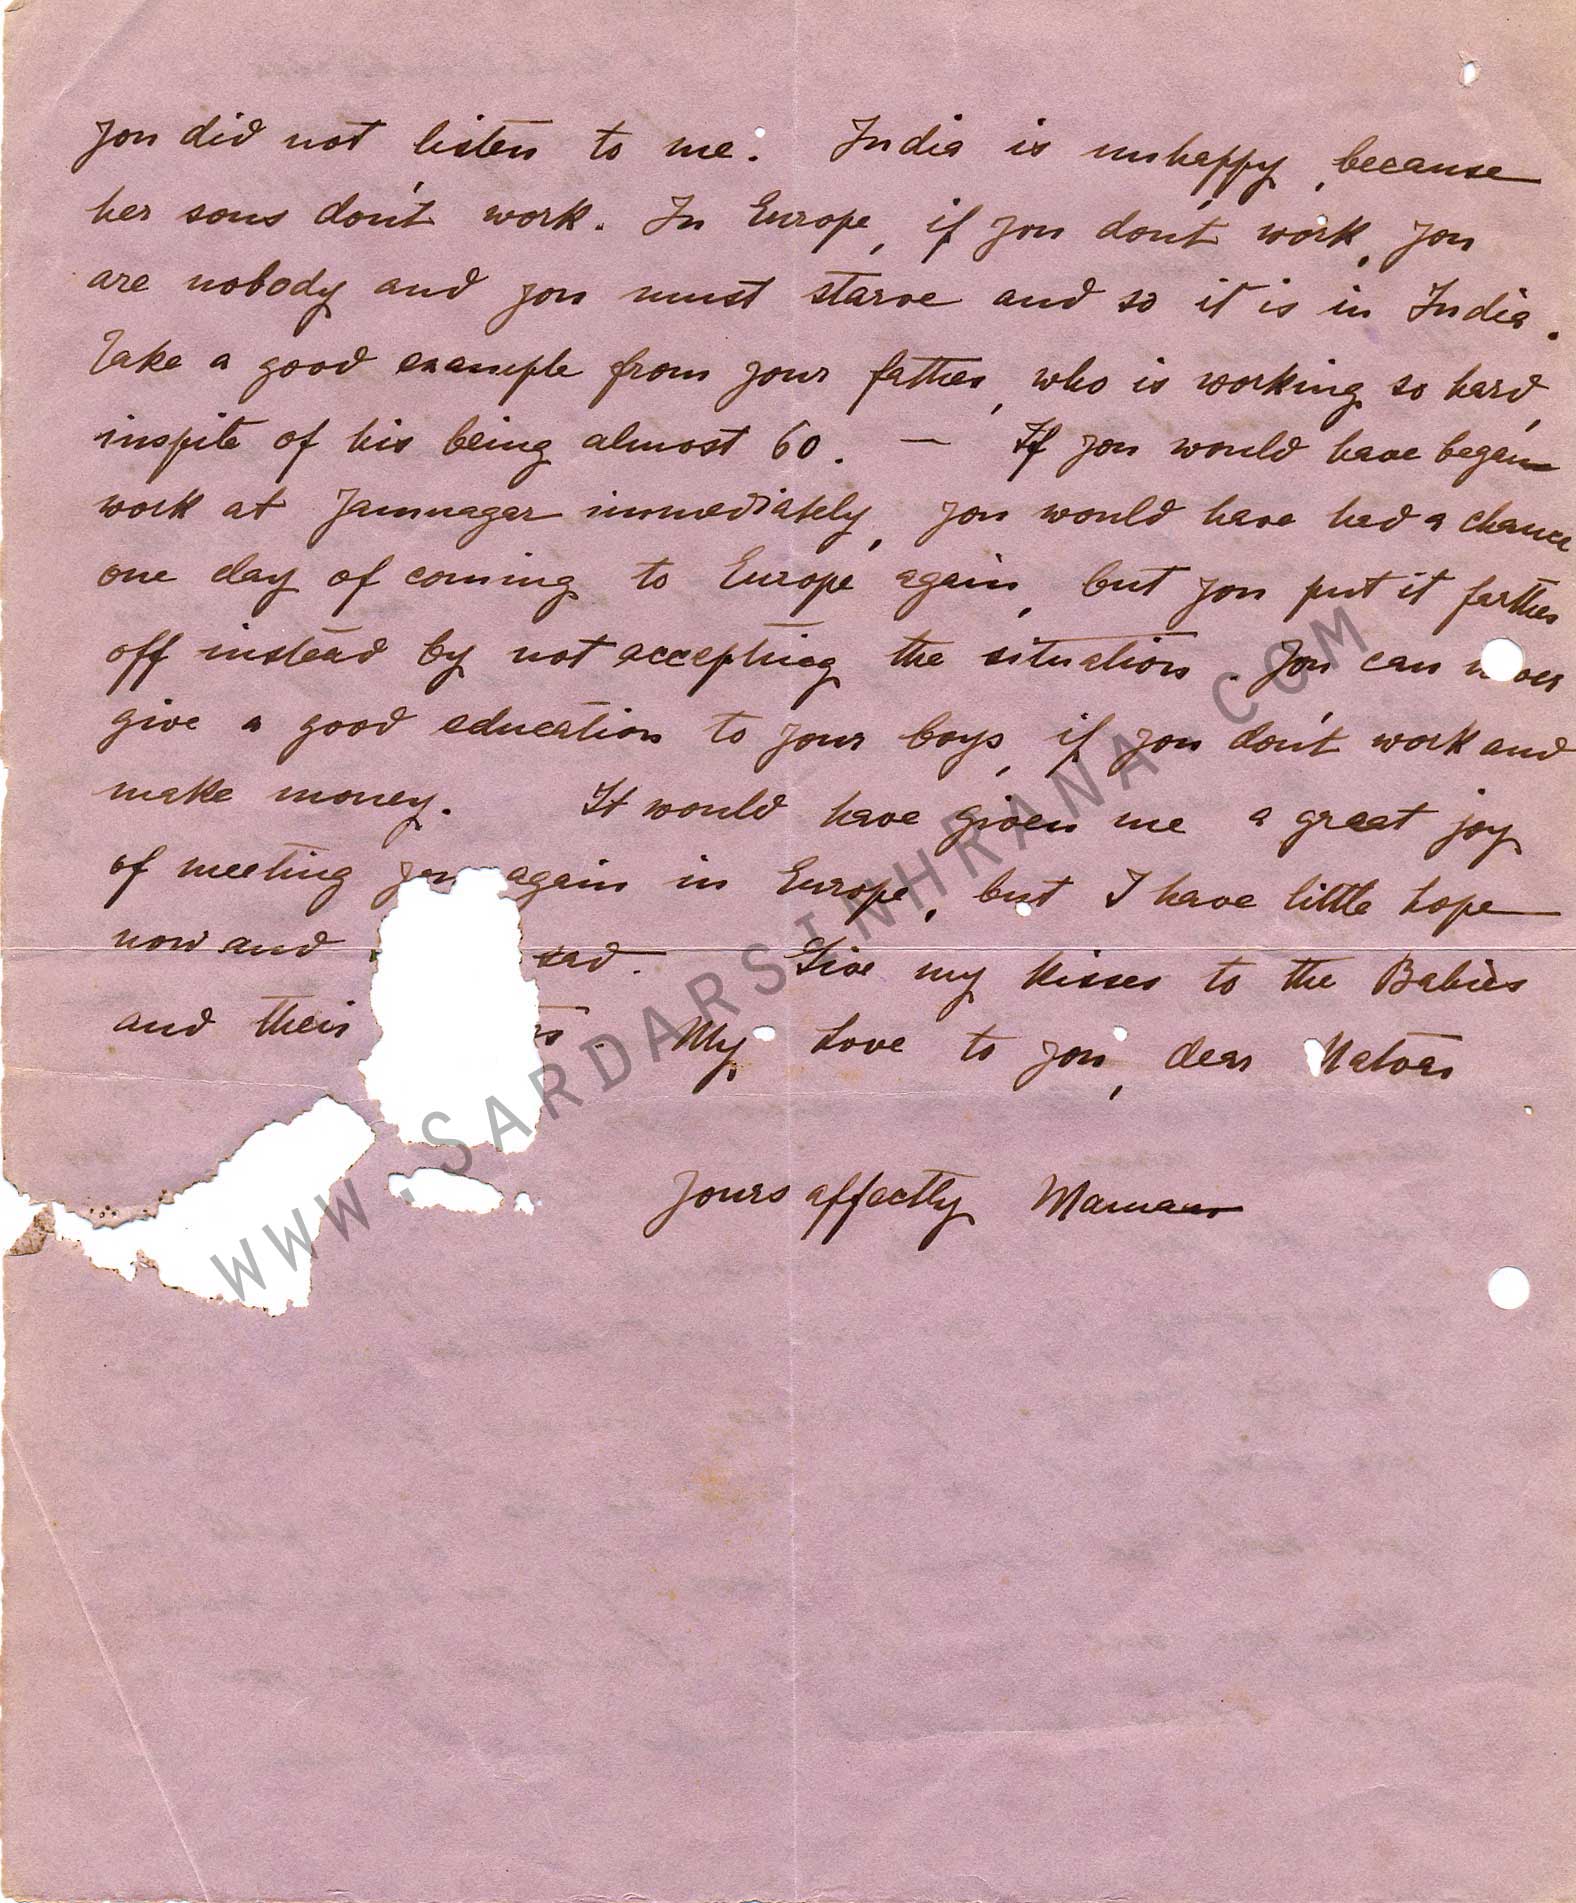 you did not listen to me. India is unhappy, because
her sons don't work. In Europe, if you don't work, you
are nobody and you must starve and so it is in India.
Take a good example from your father, who is working so hard,
inspite of his being almost 60. — If you would have began
work at Jamnagar immediately, you would have had a chance
one day of coming to Europe again, but you put it farther
off instead by not accepting the situation. You can
give a good education to your boys, if you don't work and
make money. It would have given me a great joy
of meeting you again in Europe, but I have little hope
now and sad. Give my kisses to the Babies
and their My Love to you, dear Natvar
Yours affectly Maman
WWW.SARDARSINHRANA.COM